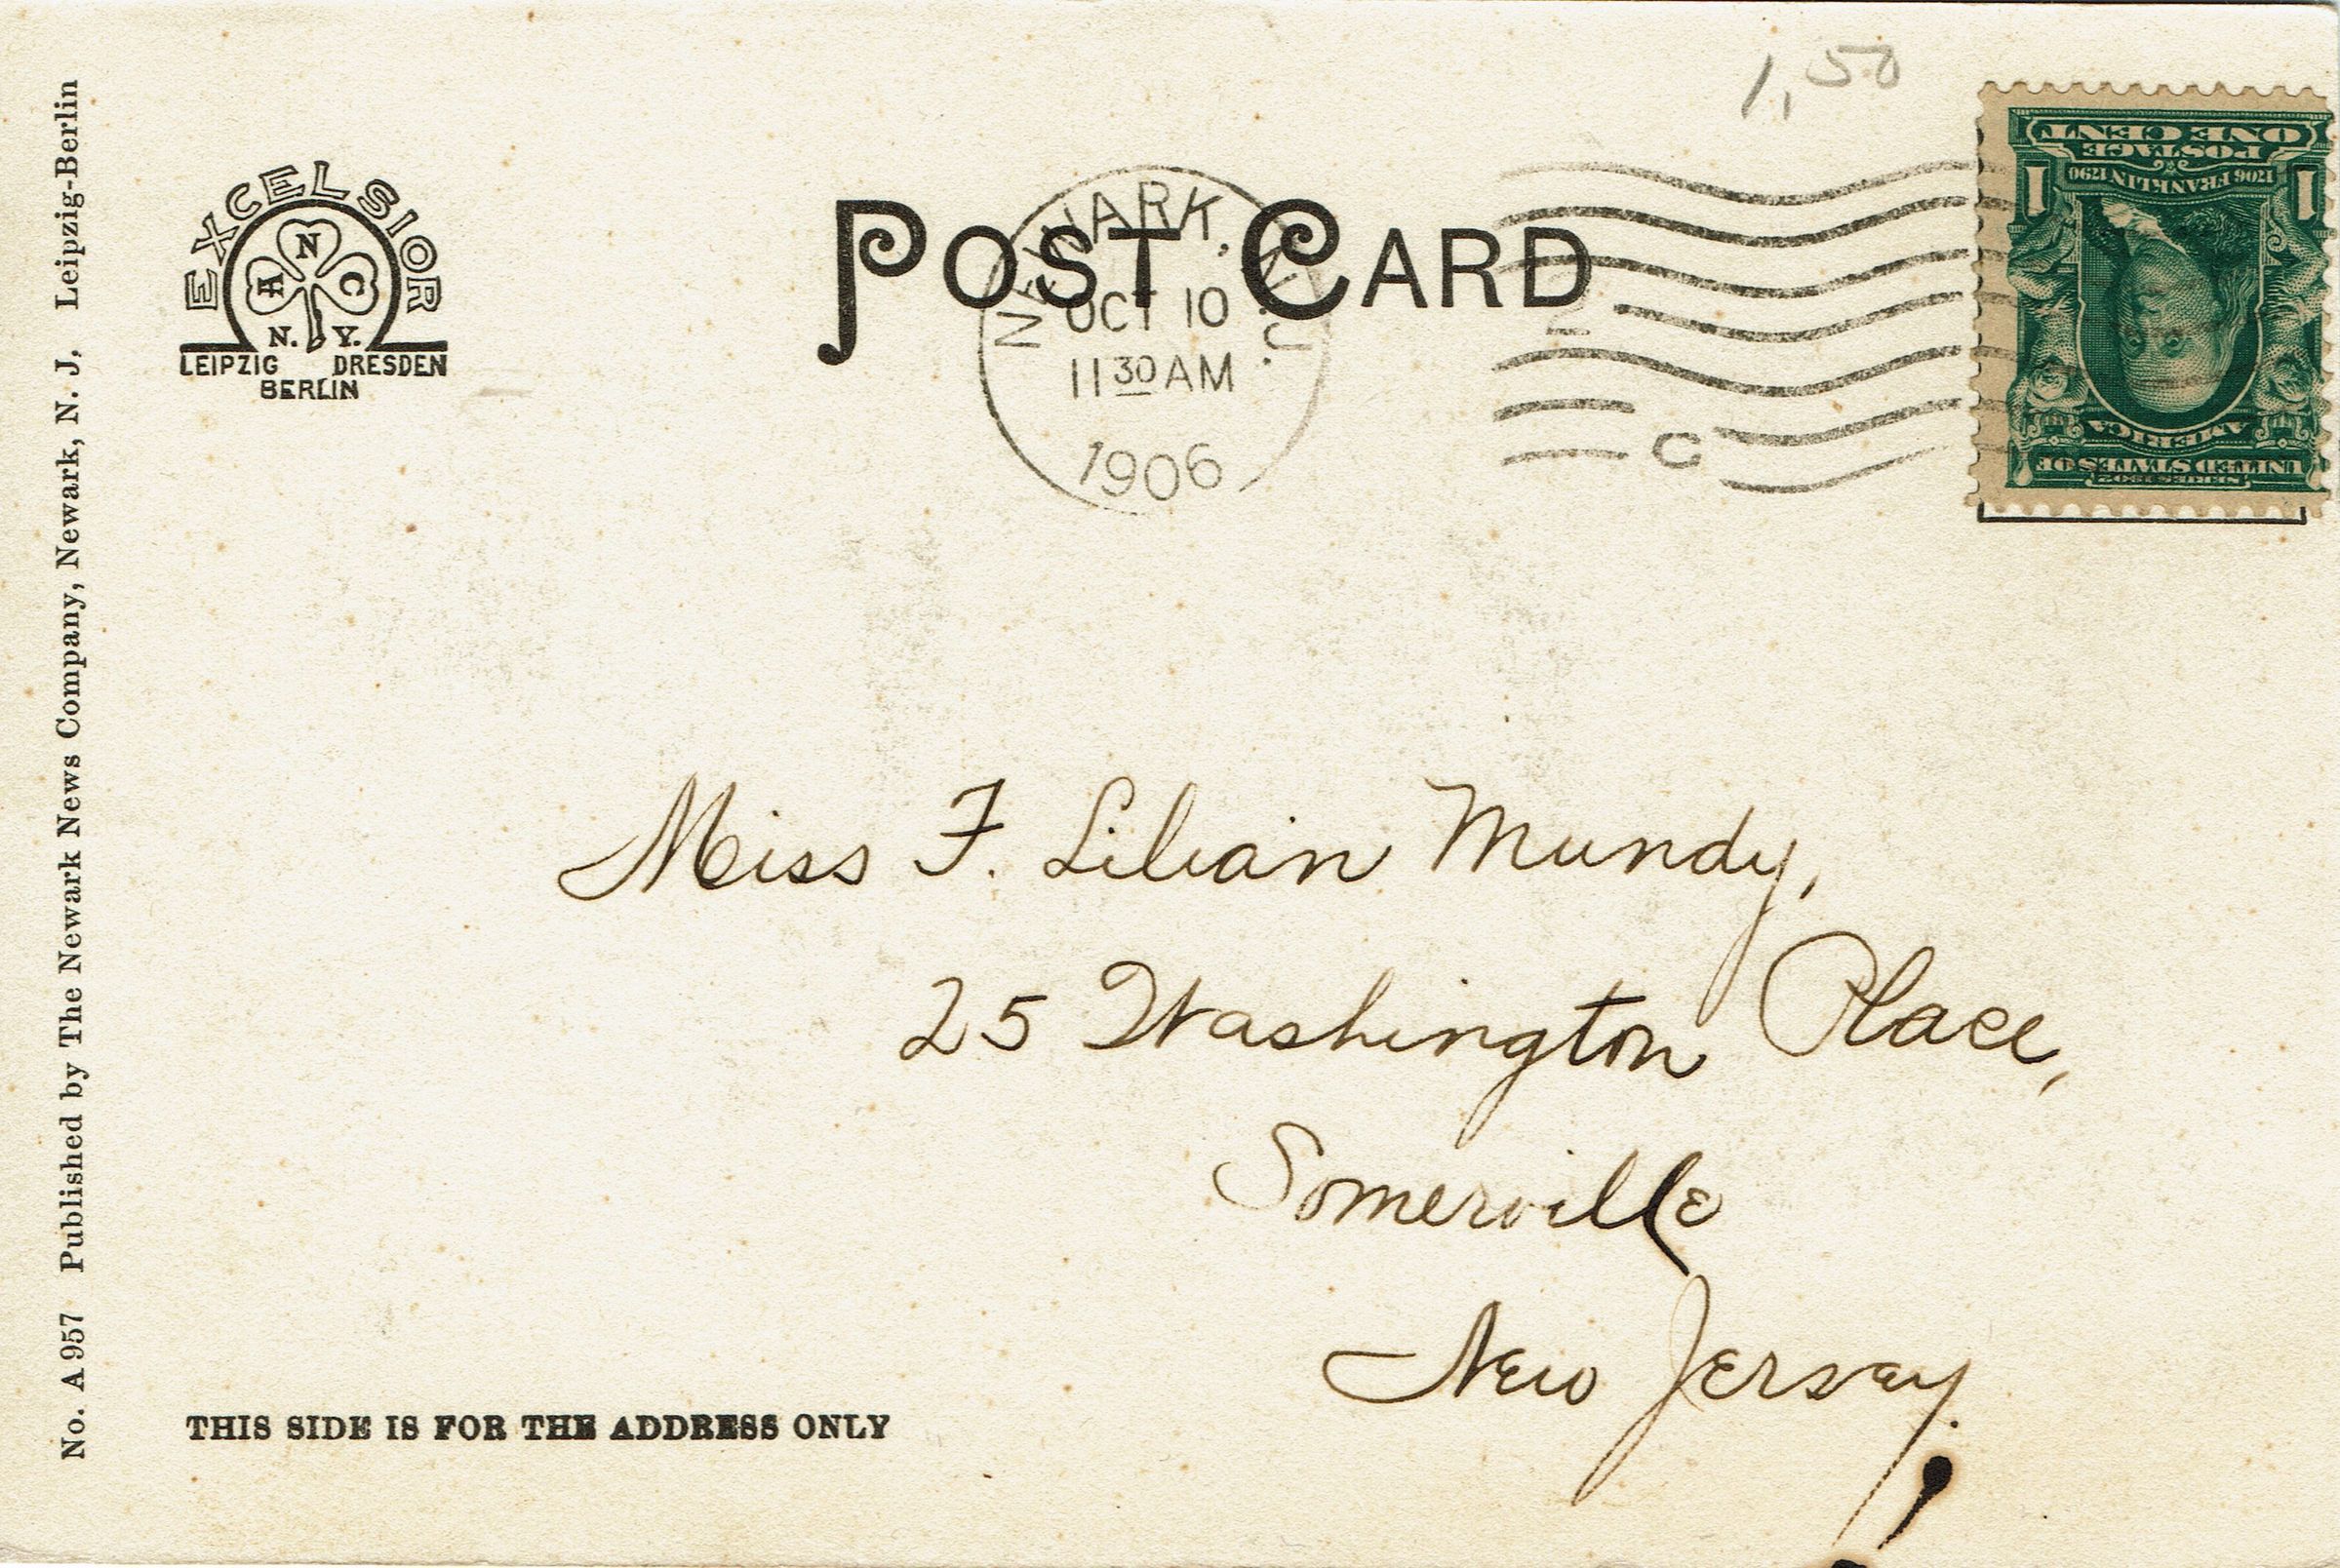 No. A 957 Published by The Newark News Company, Newark, N. J. Leipzig-Berlin
EXCELSIOR
A N C
N. Y.
LEIPZIG DRESDEN
BERLIN
POST CARD
NEWARK, N.J.
OCT 10
11 30 AM
1906
C
1,50
ONE CENT
POSTAGE
1706 FRANKLIN 1790
1 1
AMERICA
UNITED STATES OF
SERIES 1902
Miss F. Lilian Mundy,
25 Washington Place,
Somerville
New Jersey.
THIS SIDE IS FOR THE ADDRESS ONLY